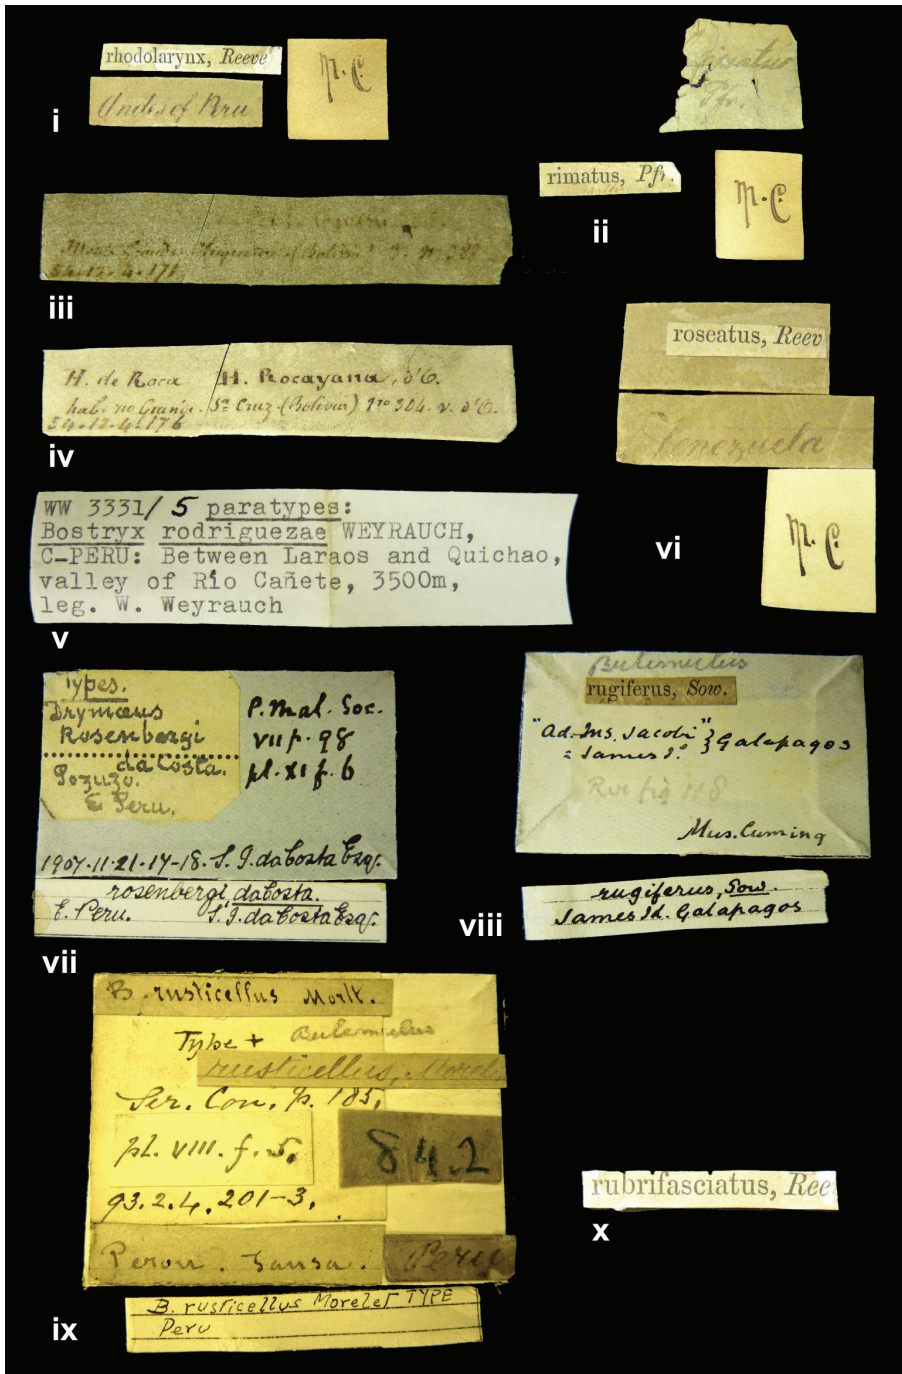 rhodolarynx, Reeve
Andes of Peru
M.C
i
Pfr.
rimatus, Pfr.
M.C
ii
54.12.4.171
iii
H. de Roca H. Rocayana, d'O.
hab. rio Grande. Sta Cruz (Bolivia) nro 304. v. d'O.
54.12.4.176
iv
roseatus, Reev
Venezuela
M.C
vi
WW 3331/ 5 paratypes:
Bostryx rodriguezae WEYRAUCH,
C-PERU: Between Laraos and Quichao,
valley of Río Cañete, 3500m,
leg. W. Weyrauch
v
Types.
Drymœus
Rosenbergi
da Costa.
Pozuzo.
E Peru.
P. Mal. Soc.
VII p. 98
pl. XI f. 6
1907.11.21.17-18. S. I. da Costa Esq.
rosenbergi, da Costa.
E. Peru. S. I. da Costa Esq.
vii
Bulimulus
rugiferus, Sow.
"Ad. Ins. Jacobi" } Galapagos
= James Id. }
Rve fig 118
Mus. Cuming
rugiferus, Sow.
James Id. Galapagos
viii
B. rusticellus Morlt.
Type + Bulimulus
rusticellus, Morel.
Ser. Con. p. 185,
pl. VIII. f. 5,
842
93.2.4.201-3.
Perou. Sansa. Peru
B. rusticellus Morelet TYPE
Peru
ix
rubrifasciatus, Ree
x